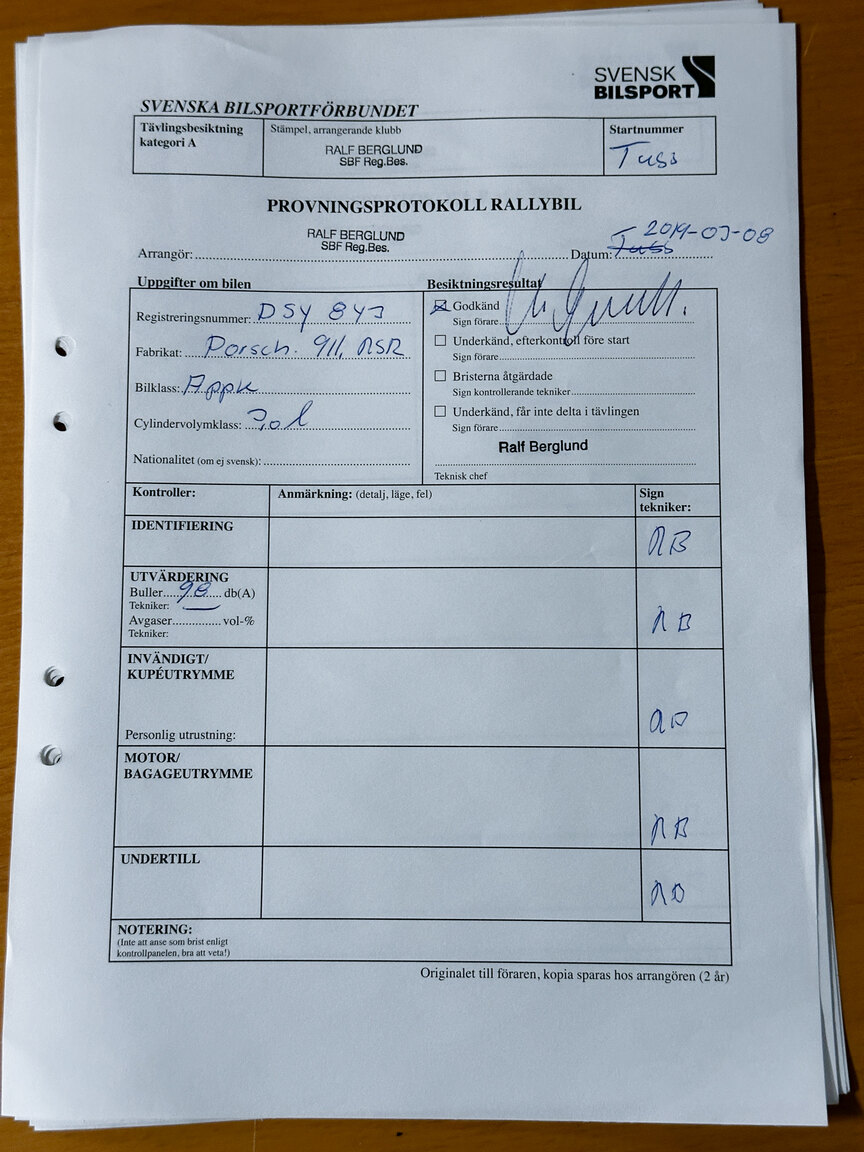 SVENSK
BILSPORT
SVENSKA BILSPORTFÖRBUNDET
Tävlingsbesiktning
kategori A
Stämpel, arrangerande klubb
RALF BERGLUND
SBF Reg.Bes.
Startnummer
Tuss
PROVNINGSPROTOKOLL RALLYBIL
RALF BERGLUND
SBF Reg.Bes.
Arrangör:
Datum: Tuss 2019-03-08
Uppgifter om bilen
Registreringsnummer: DSY 843
Fabrikat: Porsch. 911, RSR
Bilklass: Appk
Cylindervolymklass: 3,0 l
Nationalitet (om ej svensk):
Besiktningsresultat
Godkänd
Sign förare
Underkänd, efterkontroll före start
Sign förare
Bristerna åtgärdade
Sign kontrollerande tekniker
Underkänd, får inte delta i tävlingen
Sign förare
Ralf Berglund
Teknisk chef
Kontroller:
Anmärkning: (detalj, läge, fel)
Sign
tekniker:
IDENTIFIERING
RB
UTVÄRDERING
Buller 98 db(A)
Tekniker:
Avgaser vol-%
Tekniker:
RB
INVÄNDIGT/
KUPÉUTRYMME
Personlig utrustning:
RB
MOTOR/
BAGAGEUTRYMME
RB
UNDERTILL
RB
NOTERING:
(Inte att anse som brist enligt
kontrollpanelen, bra att veta!)
Originalet till föraren, kopia sparas hos arrangören (2 år)